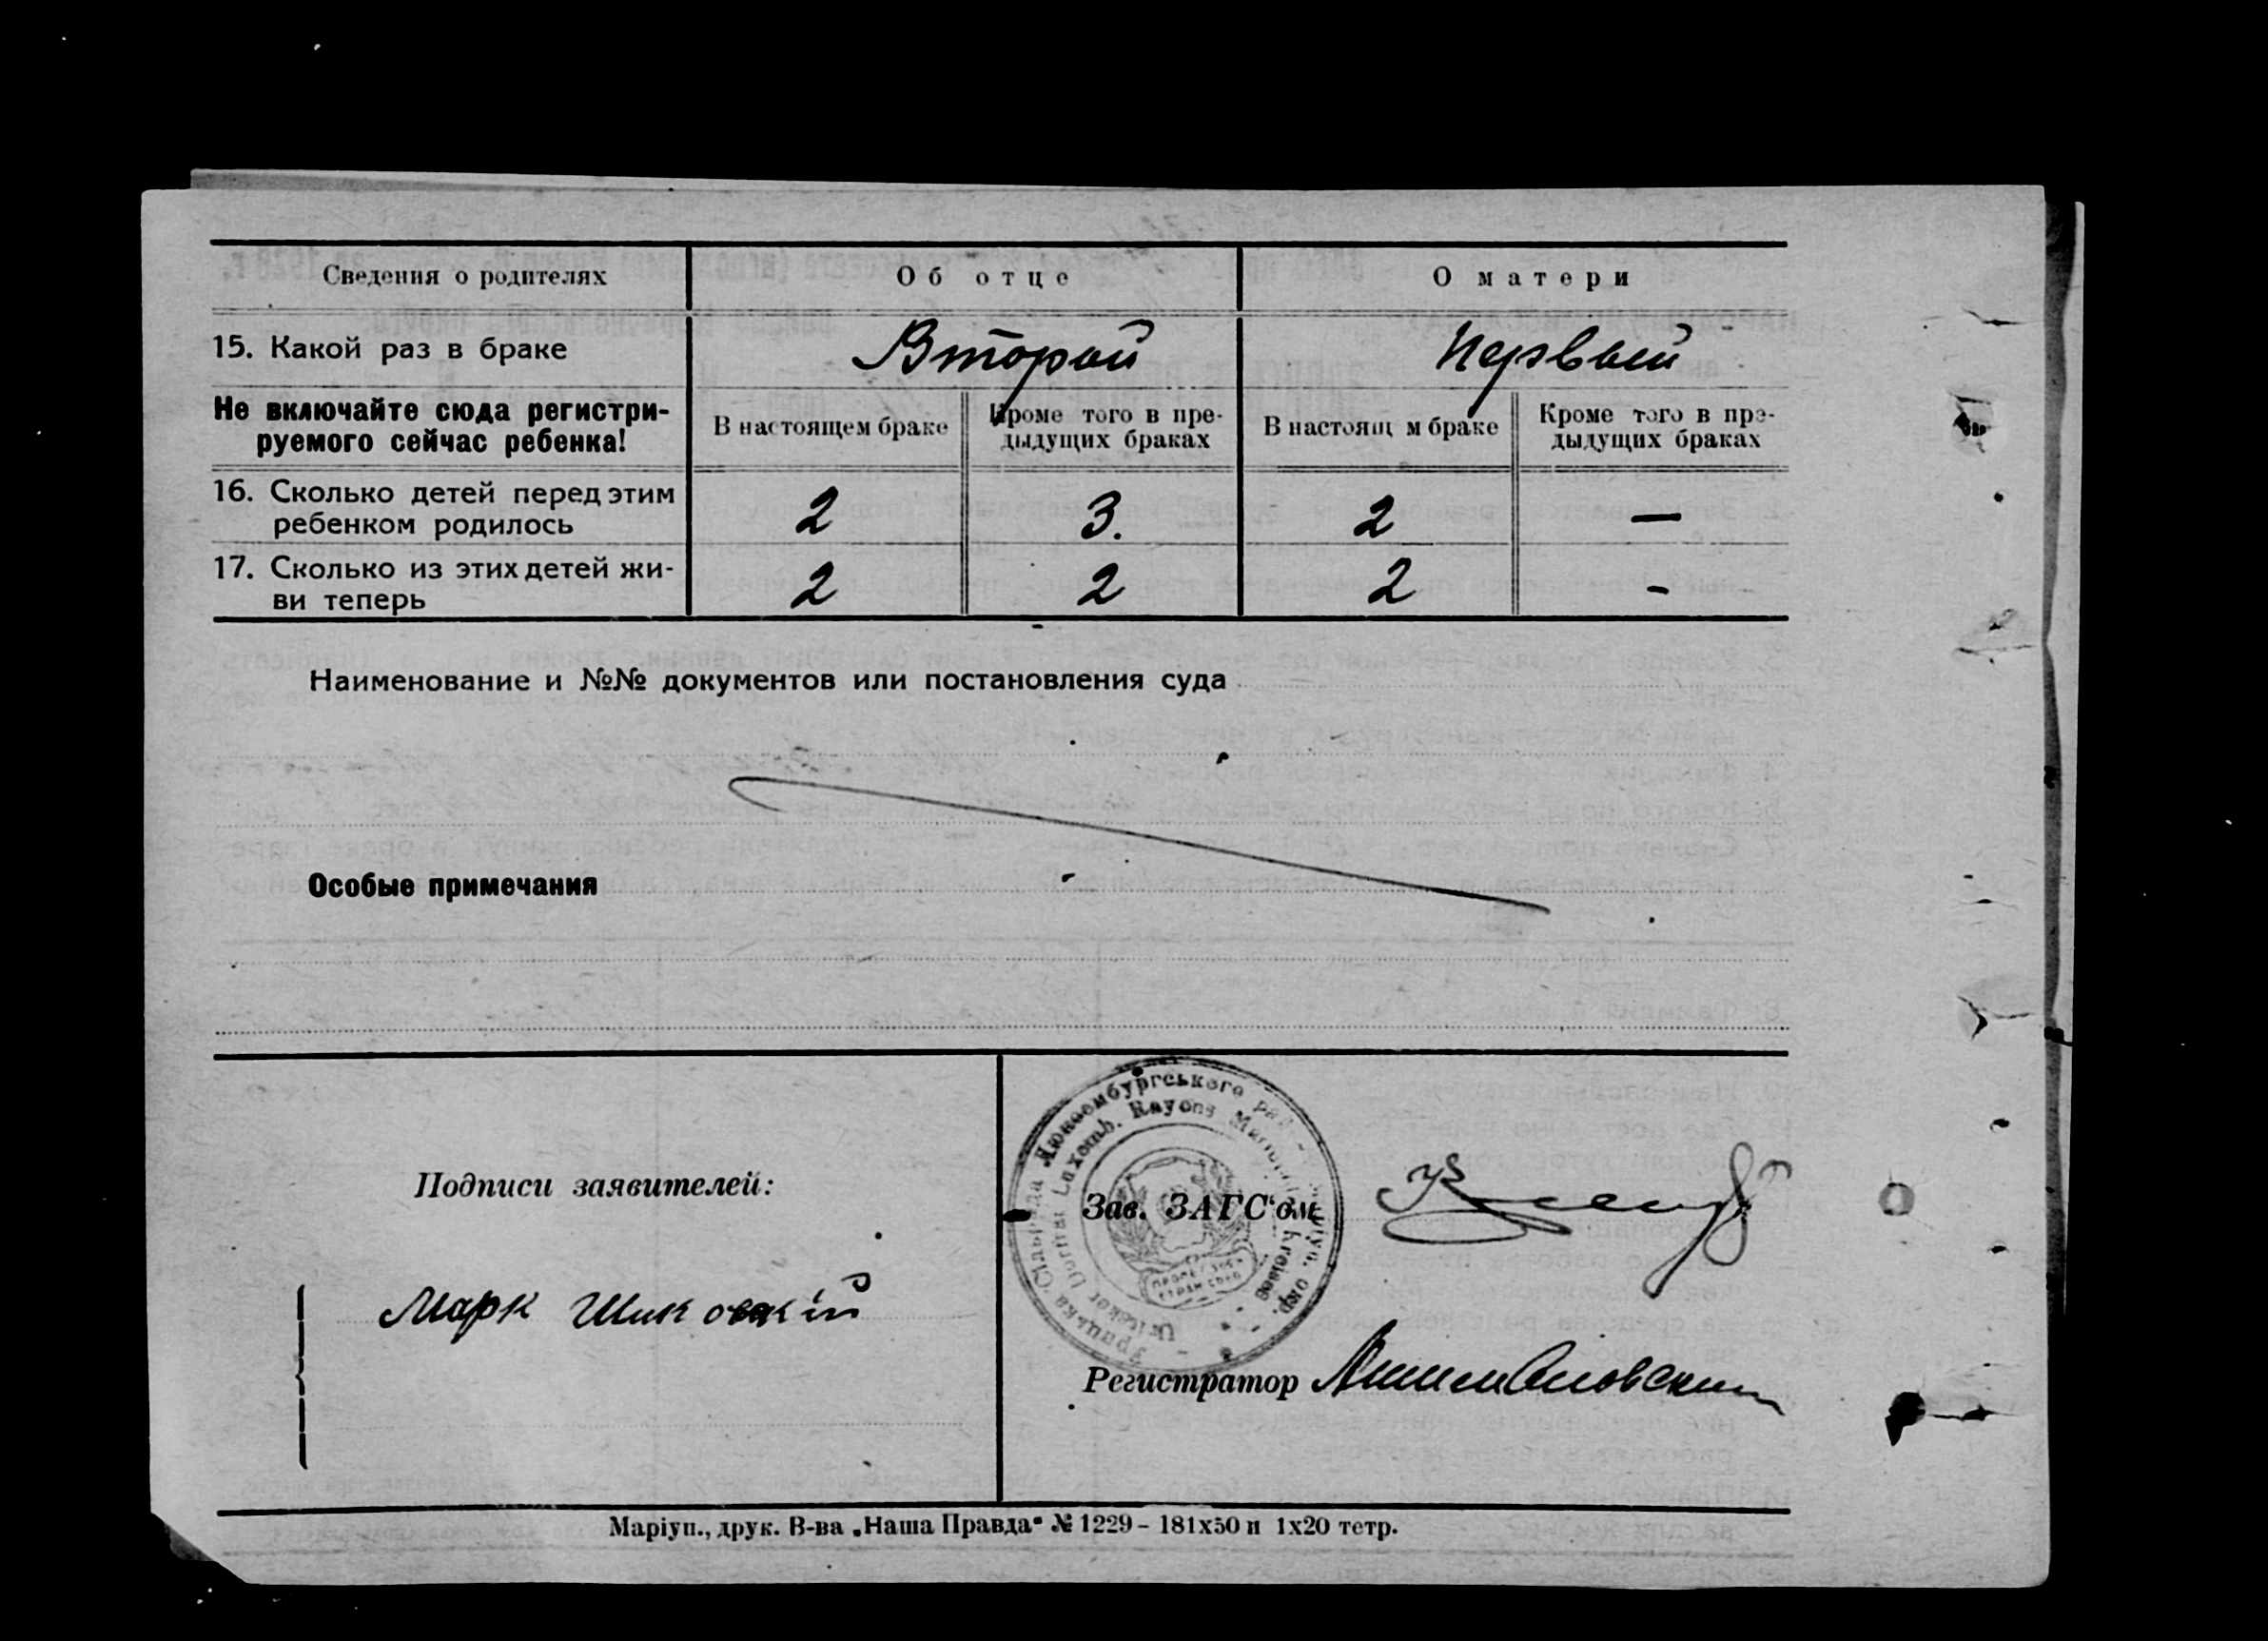 Сведения о родителях
Об отце
О матери
15. Какой раз в браке
Второй
Первый
Не включайте сюда регистри-
руемого сейчас ребенка!
В настоящем браке
Кроме того в пре-
дыдущих браках
В настоящ м браке
Кроме того в пре-
дыдущих браках
16. Сколько детей перед этим
ребенком родилось
2
3.
2
—
17. Сколько из этих детей жи-
ви теперь
2
2
2
-
Наименование и №№ документов или постановления суда
Особые примечания
Подписи заявителей:
Марк
Зав. ЗАГС'ом
Люксембургського рай
Luxemb. Rayons
kreises
Регистратор
Маріуп., друк. В-ва „Наша Правда" № 1229 - 181х50 и 1х20 тетр.